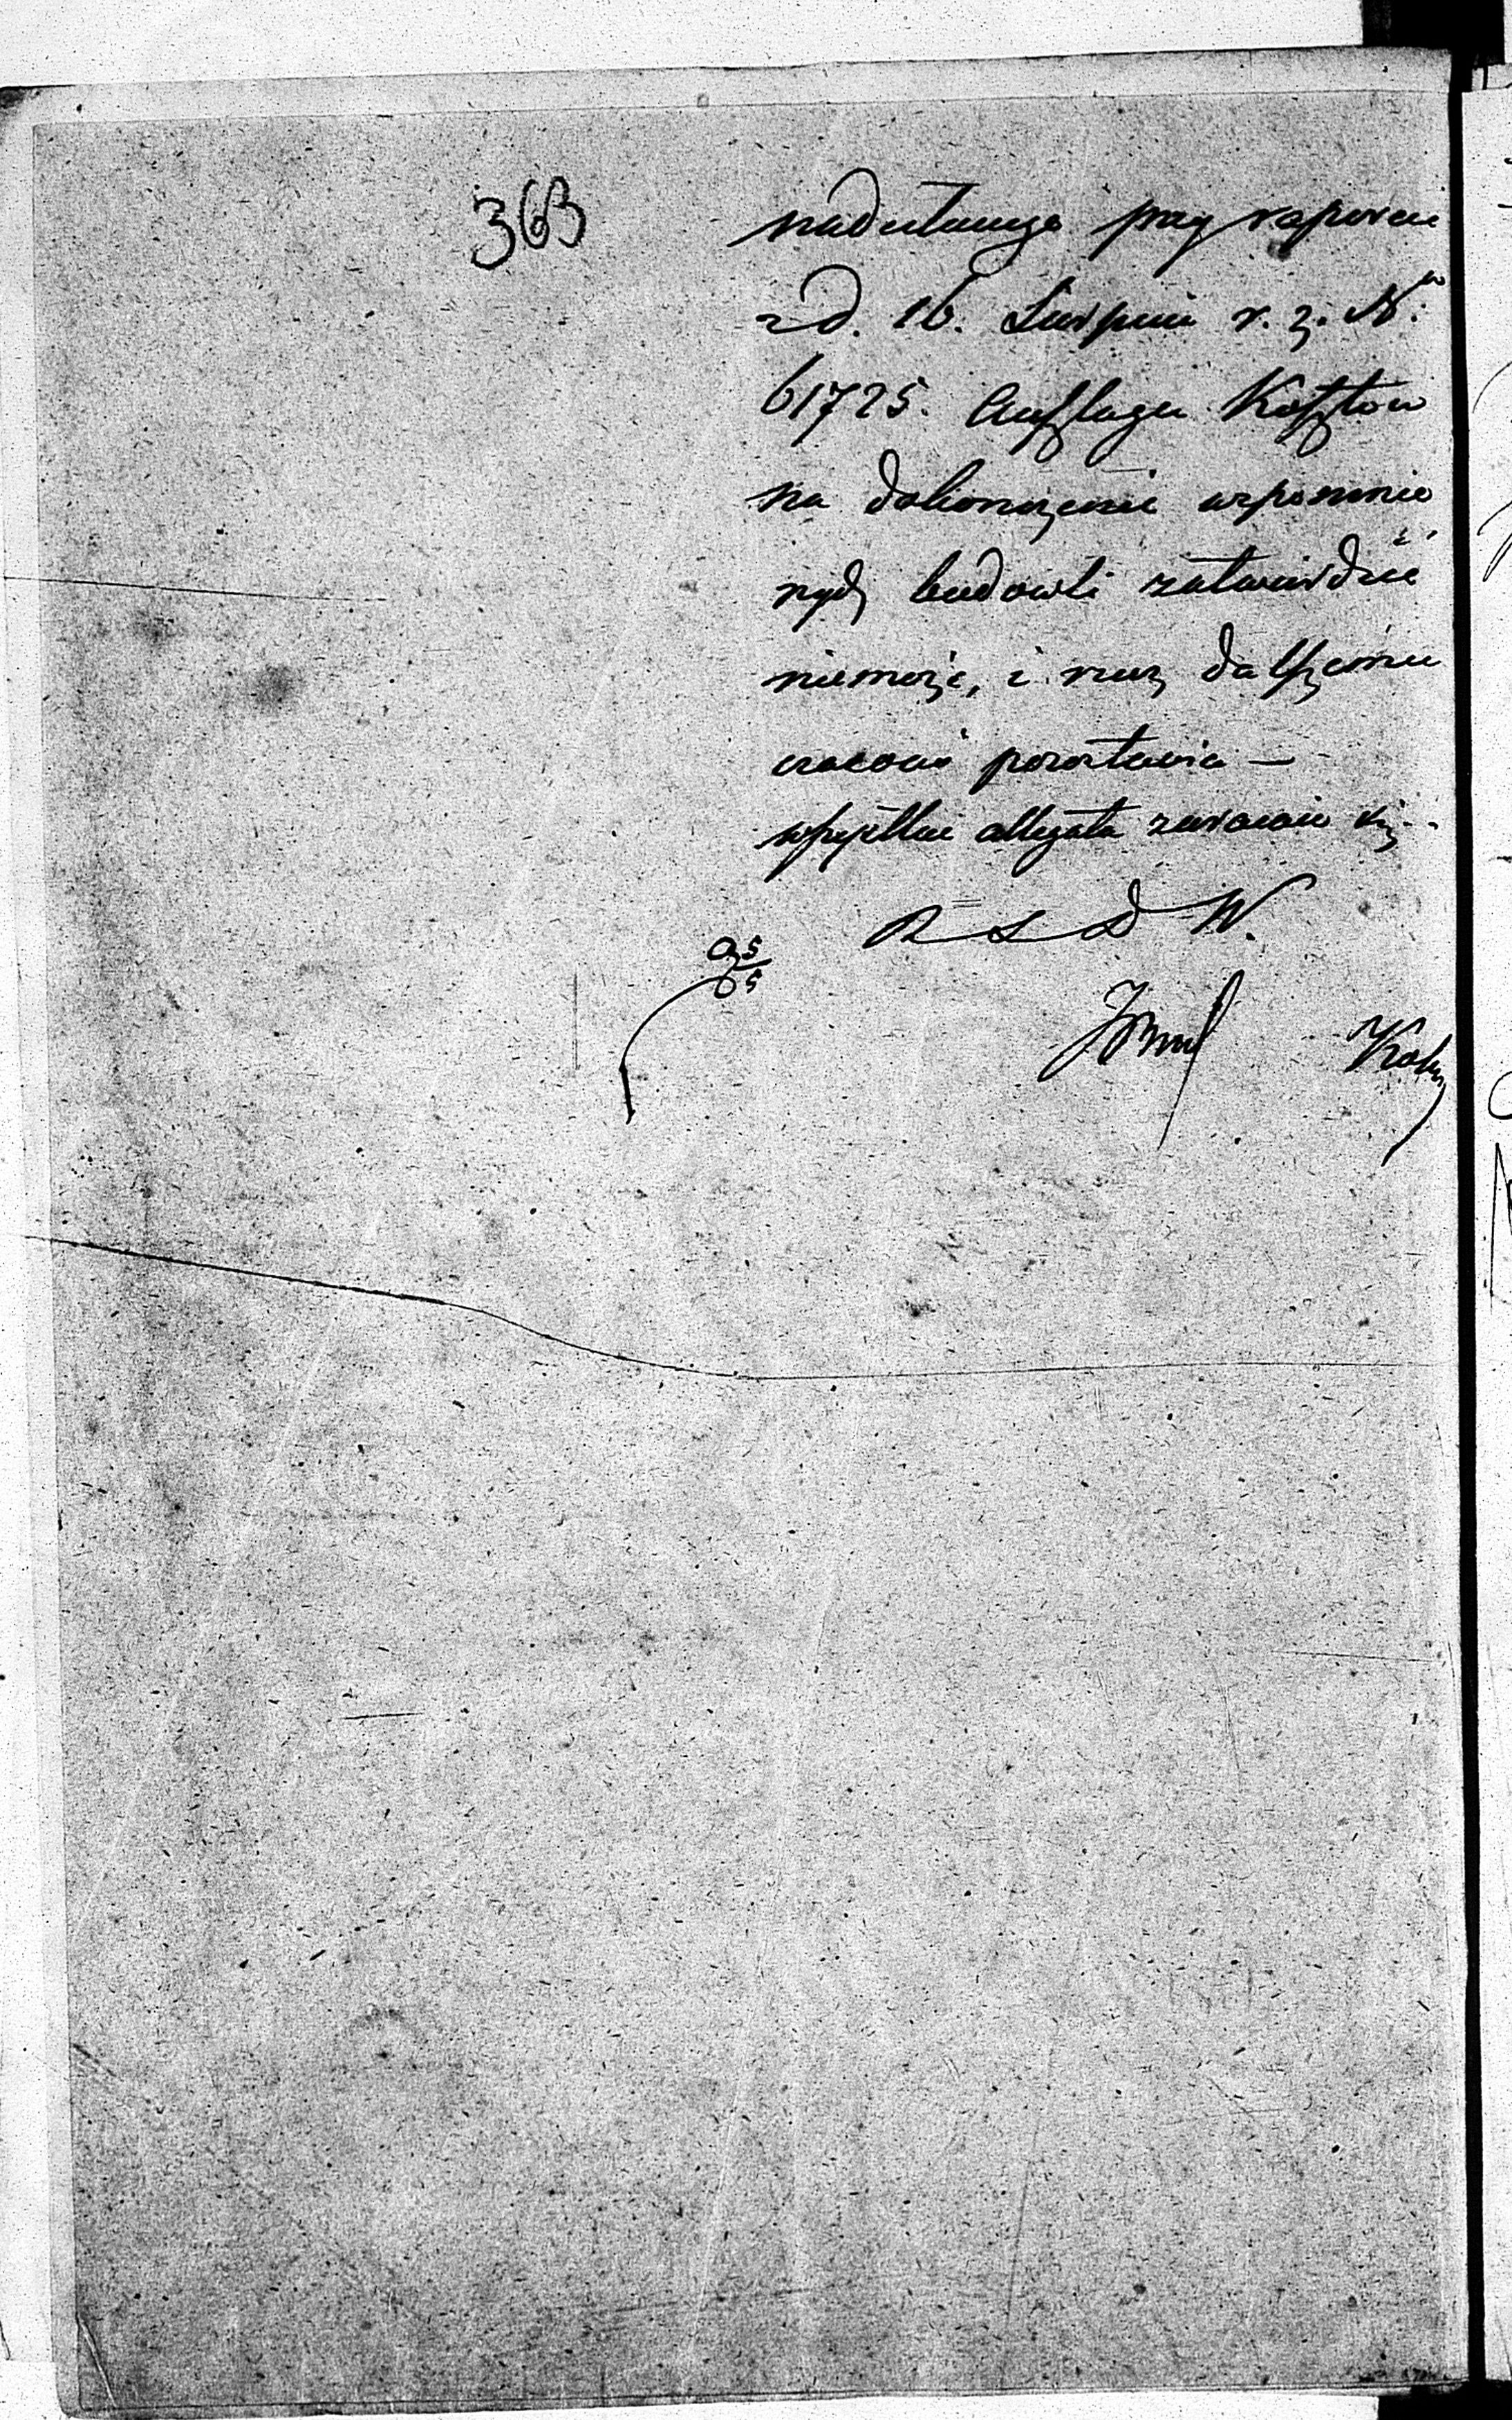 363
nadesłanego przy raporcie
z d. 16. Sierpnia r. z. Nro
61725. Anszlagu Kosztów
na dokończenie wspomnio
nych budowli zatwierdzić
niemoże, i rzecz dalszemu
pozostawia —
wszystkie allegata zwracaią się
R S D W.